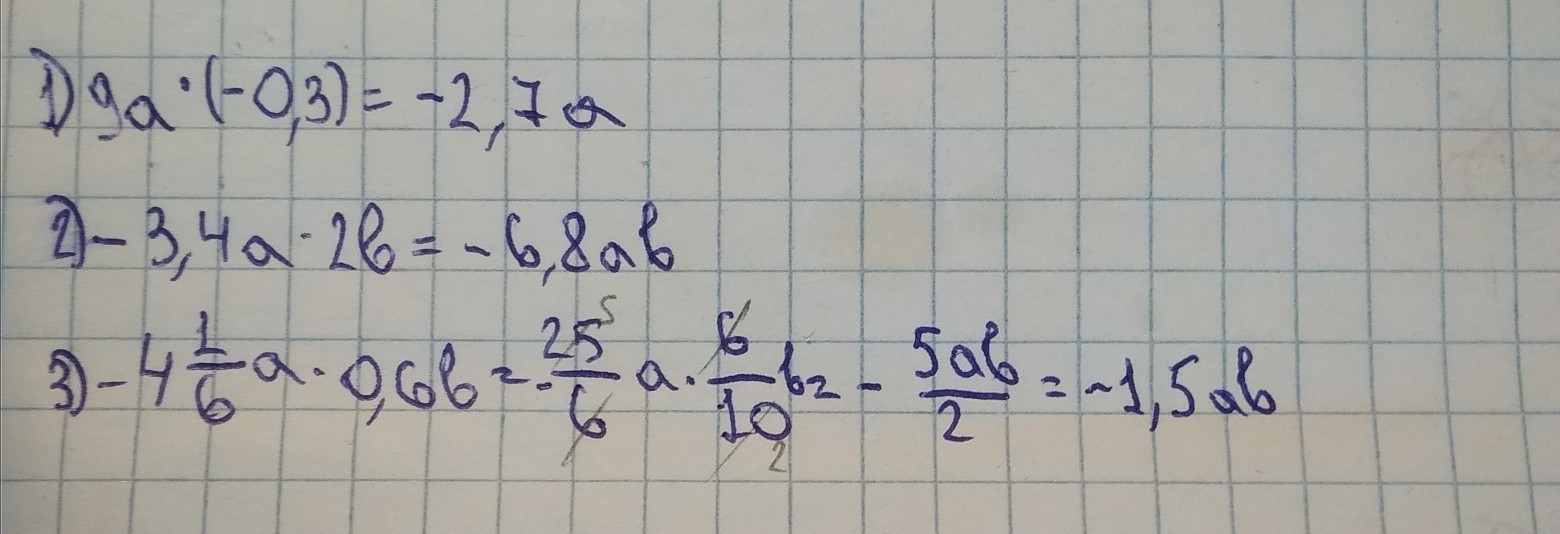 1) 9a · (-0,3) = -2,7a
2) - 3,4a · 2b = - 6,8ab
3) - 4 1/6 a · 0,6b = - 25/6 5 a · 6/10 2 b = - 5ab/2 = -1,5ab